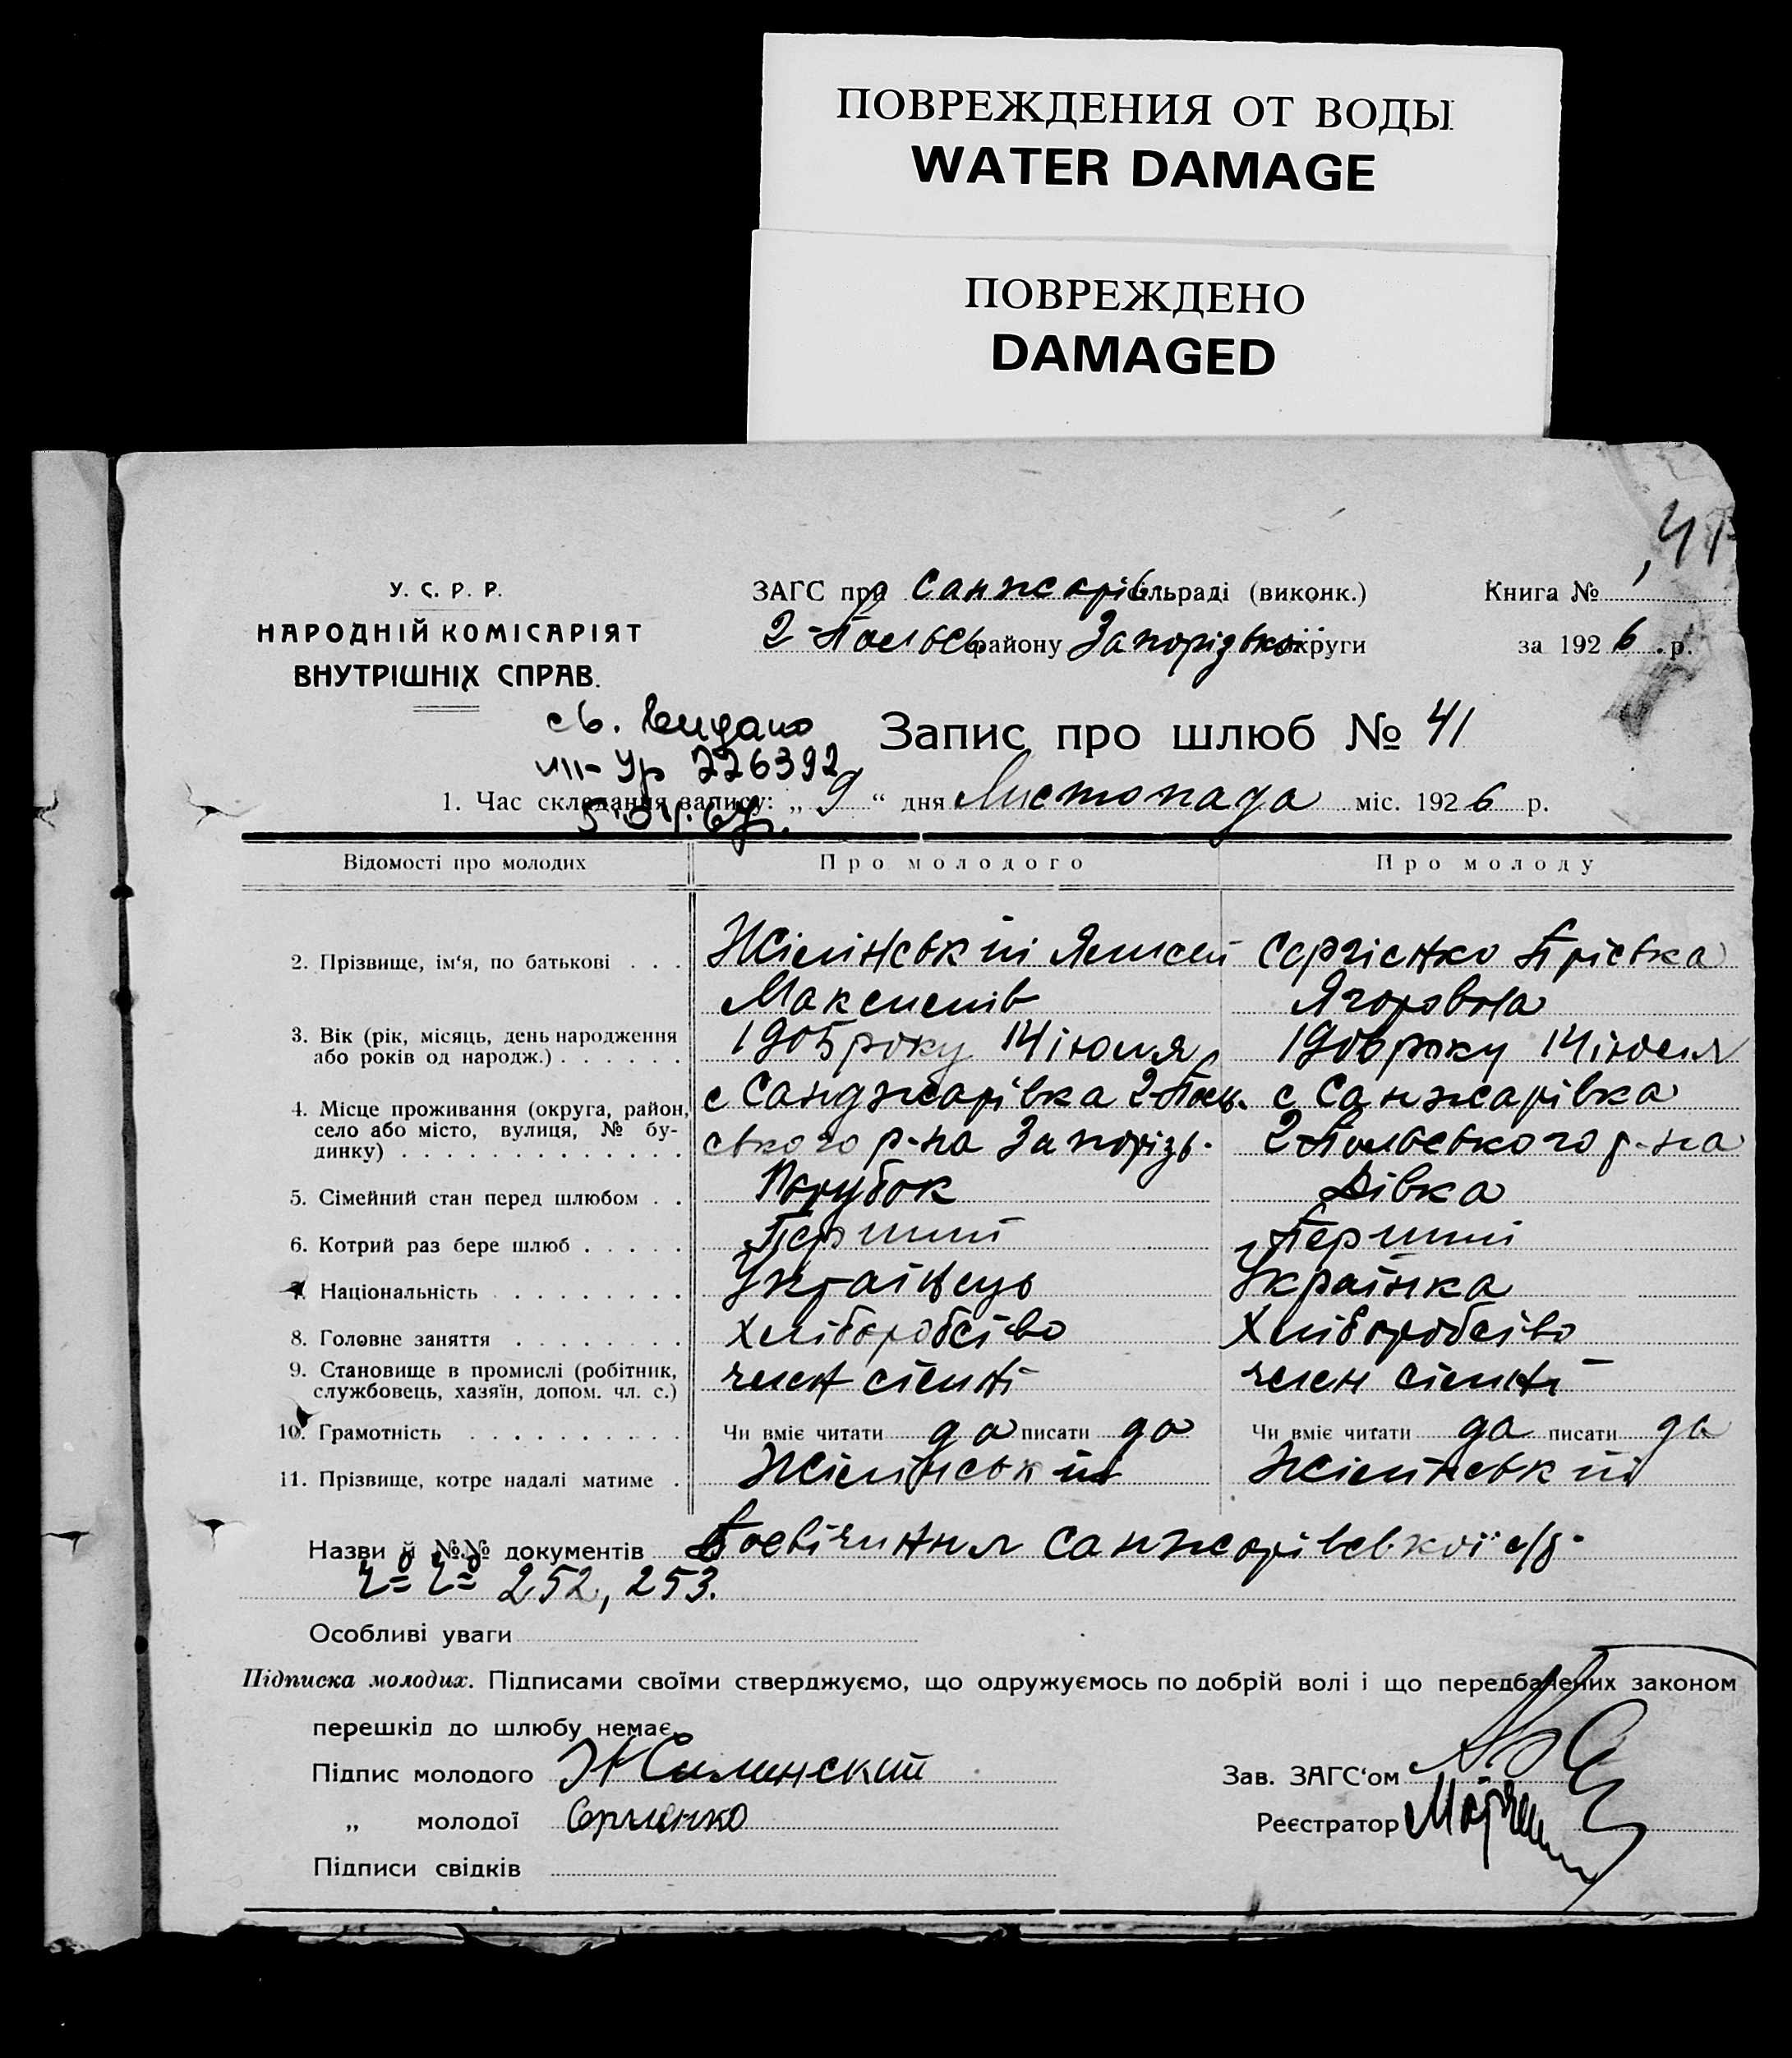 ПОВРЕЖДЕНИЯ ОТ ВОДЫ
WATER DAMAGE
ПОВРЕЖДЕНО
DAMAGED
41
У. С. Р. Р.
НАРОДНІЙ КОМІСАРІЯТ
ВНУТРІШНІХ СПРАВ.
ЗАГС при Санжарів сільраді (виконк.)
2-Польсь району Запорізької округи
Книга №
за 1926 р.
св. видано
III-УР 226392
Запис про шлюб № 41
1. Час складання запису: „ 9 “ дня Листопада міс. 1926 р.
Відомості про молодих Про молодого Про молоду
2. Прізвище, ім‘я, по батькові . . . Жілінський Сергієнко Прісвка
Максимів Ягоровна
3. Вік (рік, місяць, день народження 1905 року 14 іюля 1906 року 14 іюля
або років од народж.) . . . . . .
4. Місце проживання (округа, район, с Санджарівка 2-Поль- с Санжарівка
село або місто, вулиця, № бу- ського р-на Запорізь- 2-Польського р-на
динку) . . . . . . . . . . . . .
5. Сімейний стан перед шлюбом . . Парубок Дівка
6. Котрий раз бере шлюб . . . . . Перший Перший
7. Національність . . . . . . . . . Українець Українка
8. Головне заняття . . . . . . . . Хліборобсіво Хліборобсіво
9. Становище в промислі (робітник, член сімні член сімні
службовець, хазяїн, допом. чл. с.)
10. Грамотність . . . . . . . . . . Чи вміє читати да писати да Чи вміє читати да писати да
11. Прізвище, котре надалі матиме . Жілінський Жілінський
Назви й №№ документів Посвічиння Санжарівської с/р
252, 253.
Особливі уваги
Підписка молодих. Підписами своїми стверджуємо, що одружуємось по добрій волі і що передбачених законом
перешкід до шлюбу немає.
Підпис молодого Жилинский
Зав. ЗАГС‘ом
„ молодої Сергиенко
Реєстратор
Підписи свідків